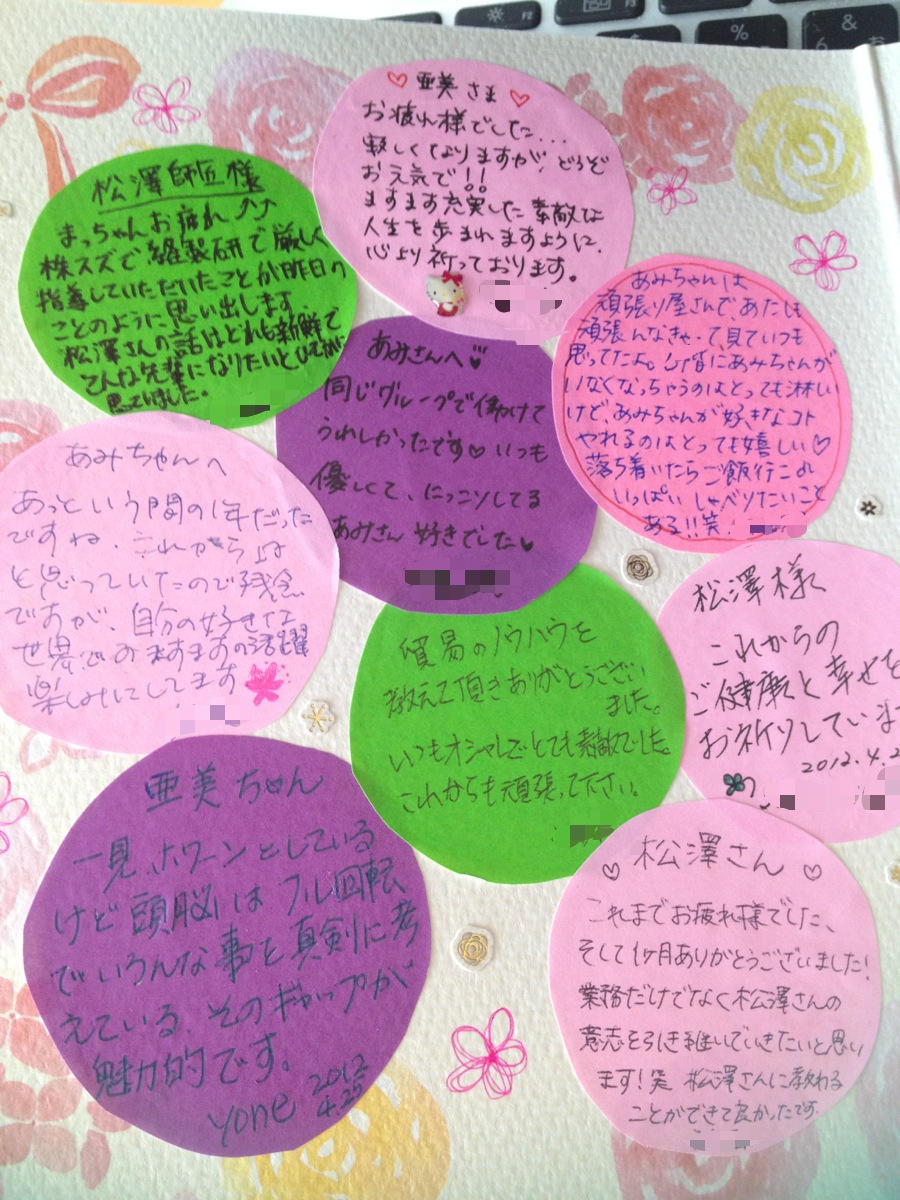 亜美さま
お疲れ様でした...
寂しくなりますが、どうぞ
お元気で!!
ますます充実した素敵な
人生を歩まれますように、
心より祈っております。
松澤師匠様
まっちゃんお疲れ↑↑
株スズで縫製研で厳しく
指導していただいたことが昨日の
ことのように思い出します。
松澤さんの話はどれも新鮮で
こんな先輩になりたいと
思っていました。
あみちゃんは
頑張り屋さんで、あたしも
頑張んなきゃ、って見ていつも
思ってたよ。6階にあみちゃんが
いなくなっちゃうのはとっても淋しい
けど、あみちゃんが好きなコト
やれるのはとっても嬉しい♡
落ち着いたらご飯行こ
いっぱいしゃべりたいこと
ある!!笑
あみさんへ
同じグループで働けて
うれしかったです♡いつも
優しくて、にっこりしてる
あみさん好きでした
あみちゃんへ
あっという間の1年だった
ですね。これから
と思っていたので残念
ですが、自分の好きな
世界でのますますの活躍
楽しみにしてます
貿易のノウハウを
教えて頂きありがとうござい
ました。
いつもオシャレでとても素敵でした。
これからも頑張って下さい。
松澤様
これからの
ご健康と幸せを
お祈りしています
2012.4.2
亜美ちゃん
一見、ホワーンとしている
けど頭脳はフル回転
でいろんな事を真剣に考
えている。そのギャップが
魅力的です。
yone 2012
4.25
松澤さん
これまでお疲れ様でした、
そして1ヶ月ありがとうございました!
業務だけでなく松澤さんの
意志を引き継いでいきたいと思い
ます!笑 松澤さんに教わる
ことができて良かったです。
F2
%
&
6
お